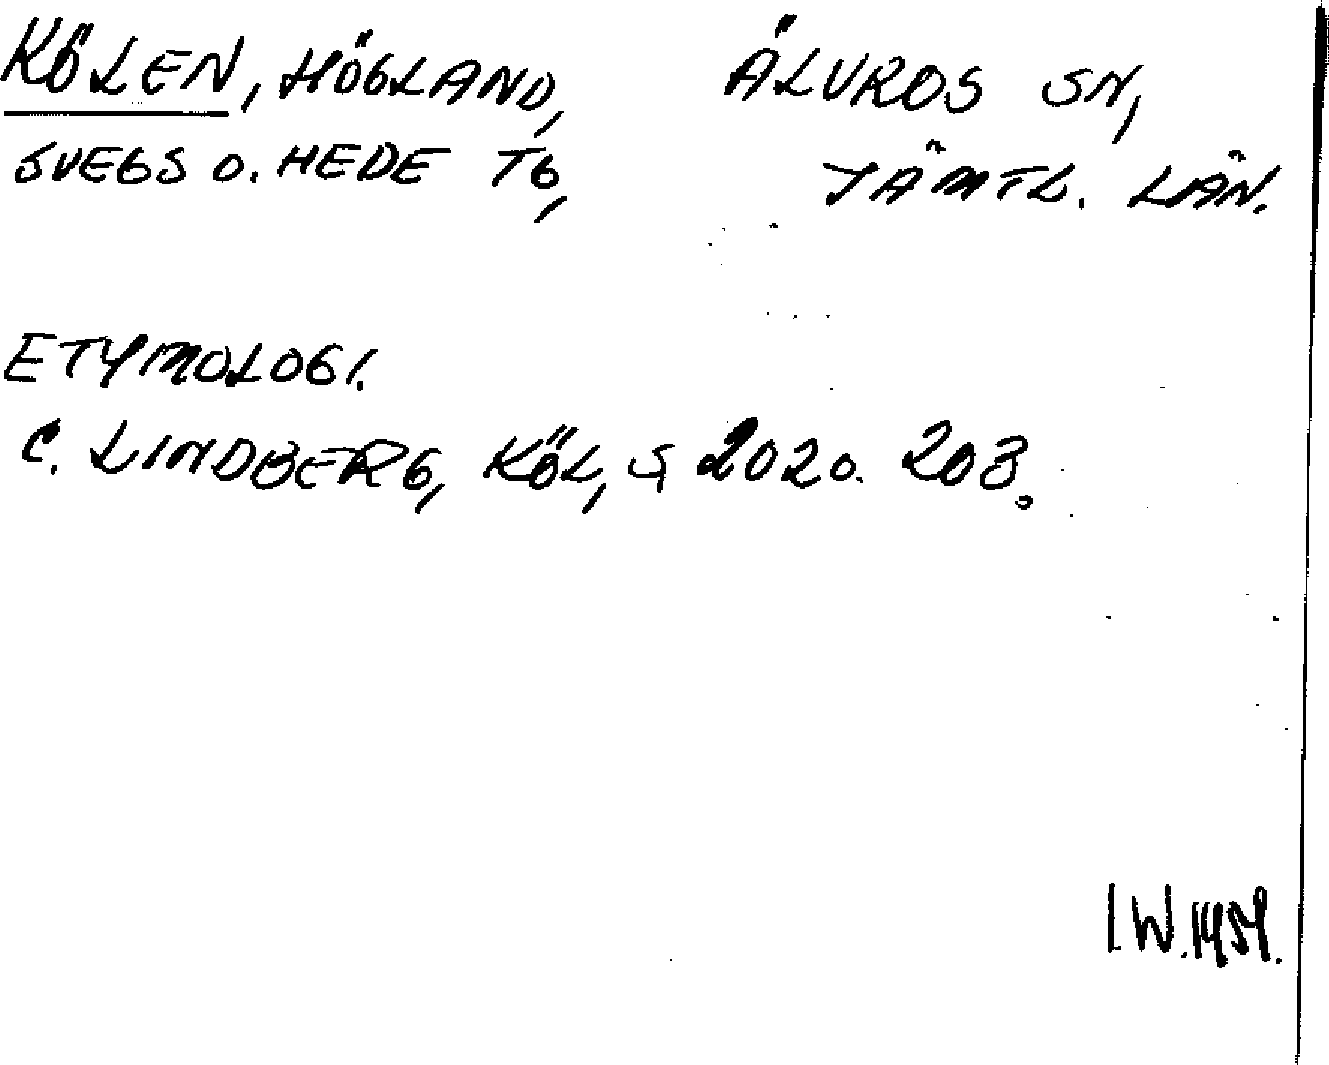 KÖLEN, HÖGLAND, ÄLVROS SN,
SVEGS O. HEDE TG, JÄMTL. LÄN.
ETYMOLOGI.
C. LINDBERG, KÖL, S 202 O. 203.
I.W. 1959.